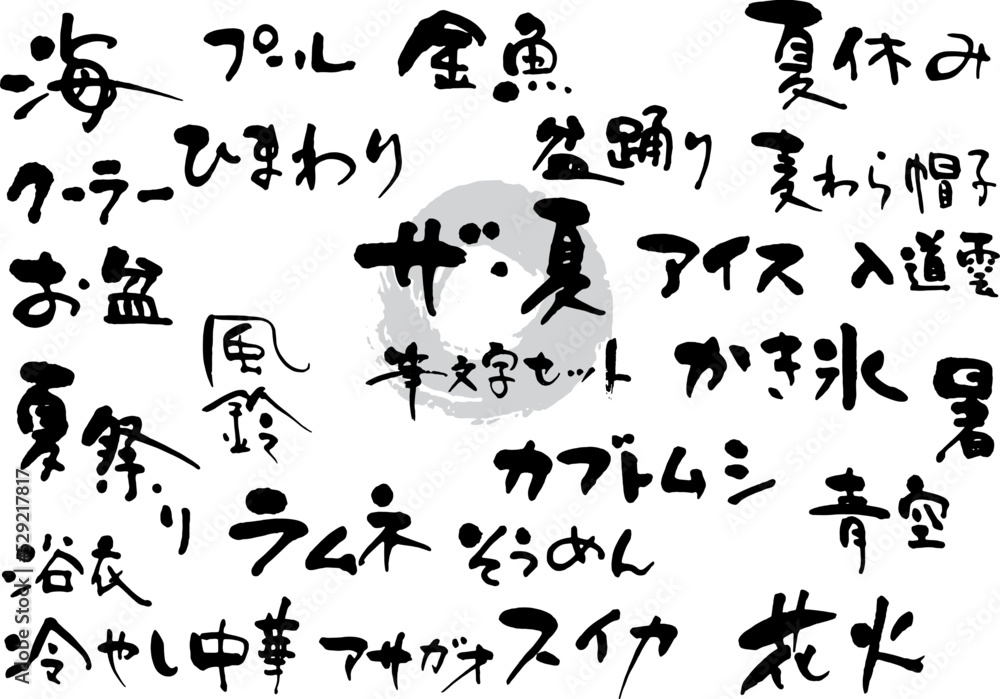 海
プール
金魚
夏休み
クーラー
ひまわり
盆踊り
麦わら帽子
お盆
ザ・夏
アイス
入道雲
風鈴
筆文字セット
かき氷
暑
夏祭り
カブトムシ
青空
ラムネ
そうめん
浴衣
冷やし中華
アサガオ
スイカ
花火
Adobe Stock | #529217817